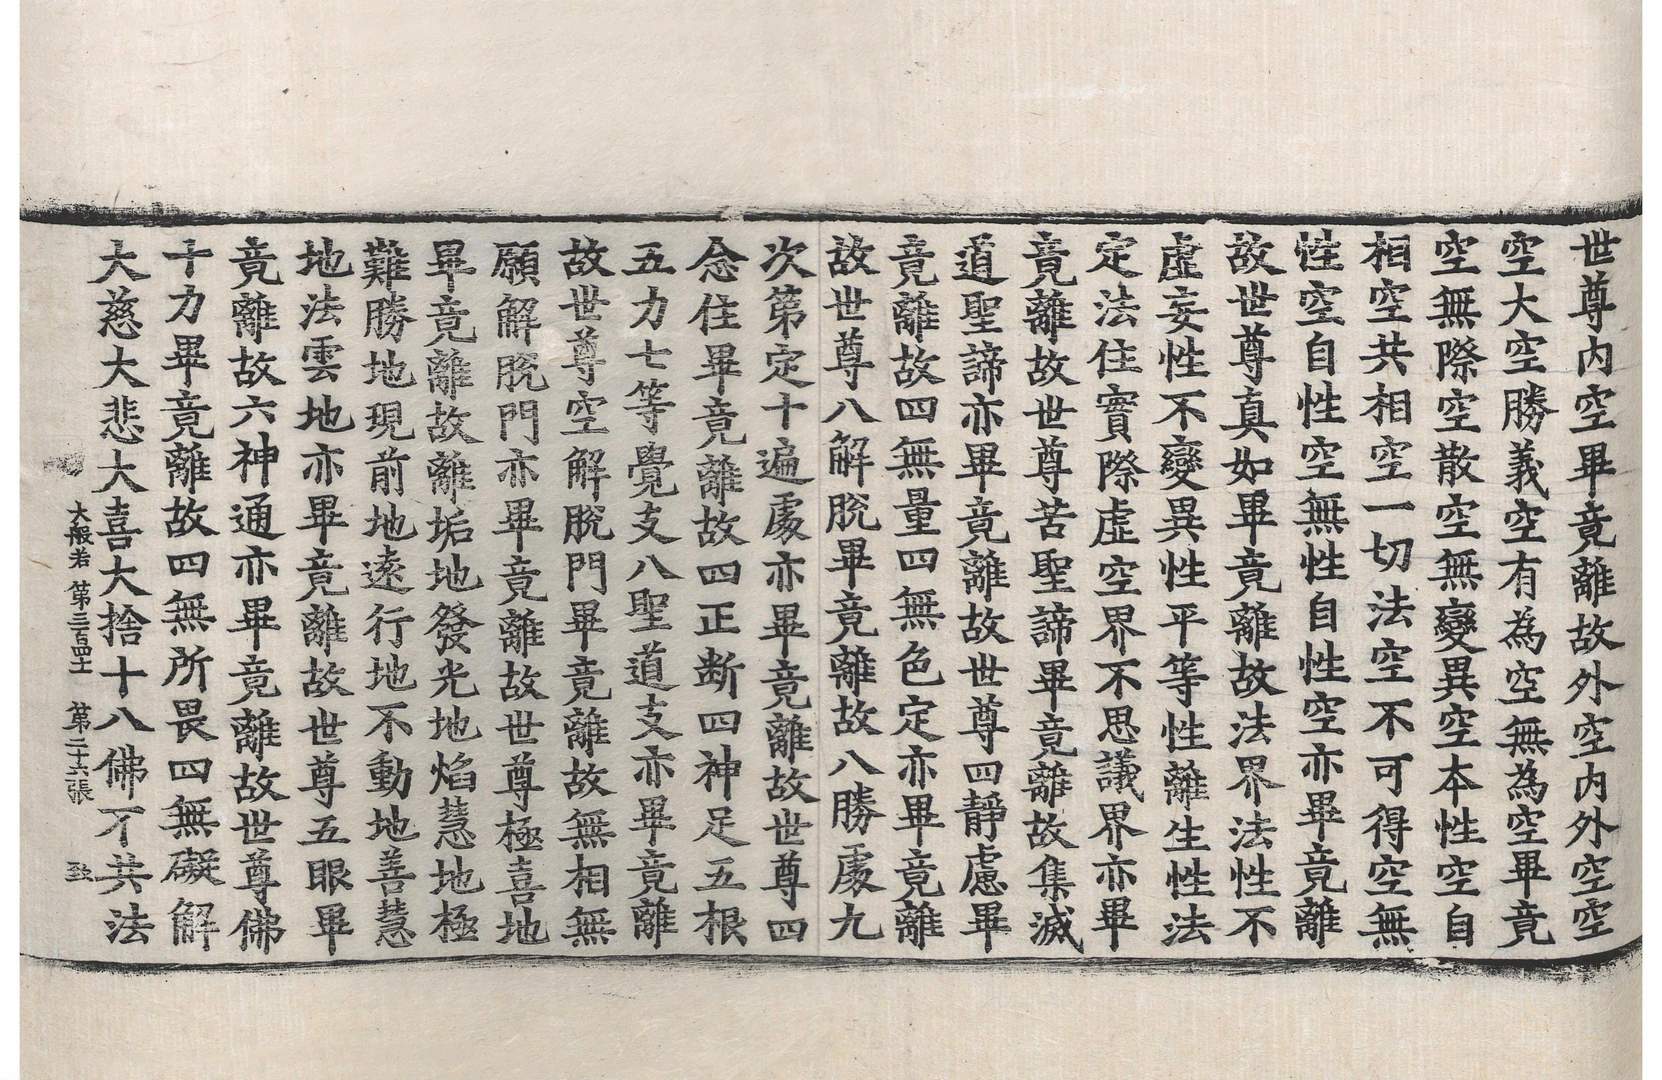 世尊内空畢竟離故外空内外空空
空大空勝義空有為空無為空畢竟
空無際空散空無變異空本性空自
相空共相空一切法空不可得空無
性空自性空無性自性空亦畢竟離
故世尊真如畢竟離故法界法性不
虛妄性不變異性平等性離生性法
定法住實際虛空界不思議界亦畢
竟離故世尊苦聖諦畢竟離故集滅
道聖諦亦畢竟離故世尊四靜慮畢
竟離故四無量四無色定亦畢竟離
故世尊八解脫畢竟離故八勝處九
次第定十遍處亦畢竟離故世尊四
念住畢竟離故四正斷四神足五根
五力七等覺支八聖道支亦畢竟離
故世尊空解脫門畢竟離故無相無
願解脫門亦畢竟離故世尊極喜地
畢竟離故離垢地發光地焰慧地極
難勝地現前地遠行地不動地善慧
地法雲地亦畢竟離故世尊五眼畢
竟離故六神通亦畢竟離故世尊佛
十力畢竟離故四無所畏四無礙解
大慈大悲大喜大捨十八佛不共法
大般若 第三百四十 第二十六張